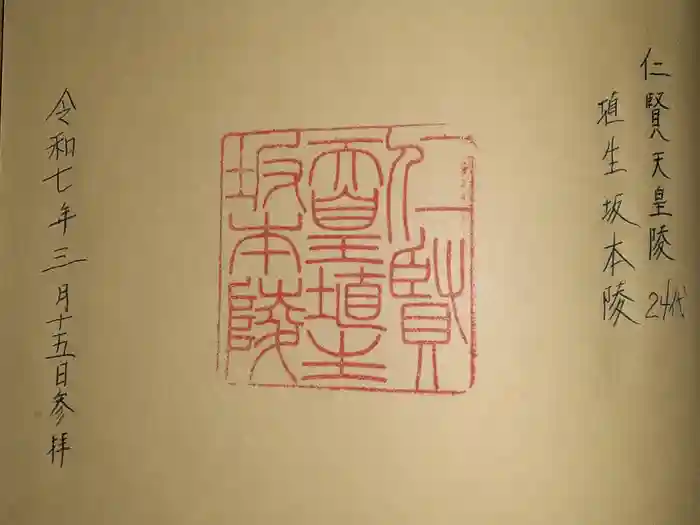 仁賢天皇陵 24代
埴生坂本陵
仁賢
天皇埴生
坂本陵
令和七年三月十五日参拝